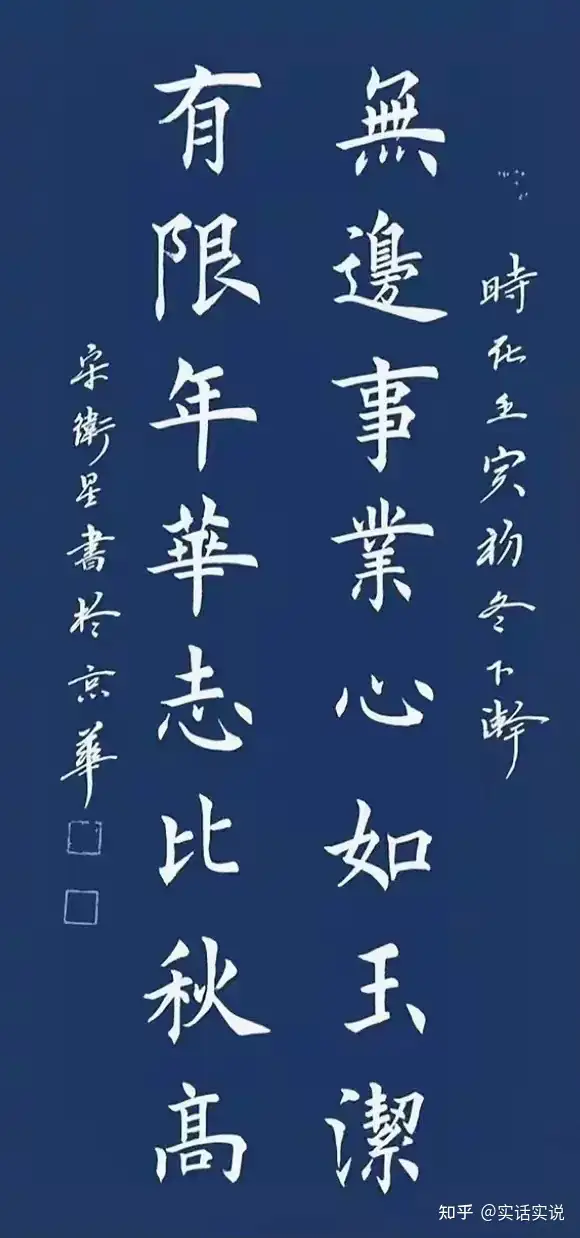 時在壬寅初冬下澣
無邊事業心如玉潔
有限年華志比秋高
宋衛星書於京華
知乎 @实话实说